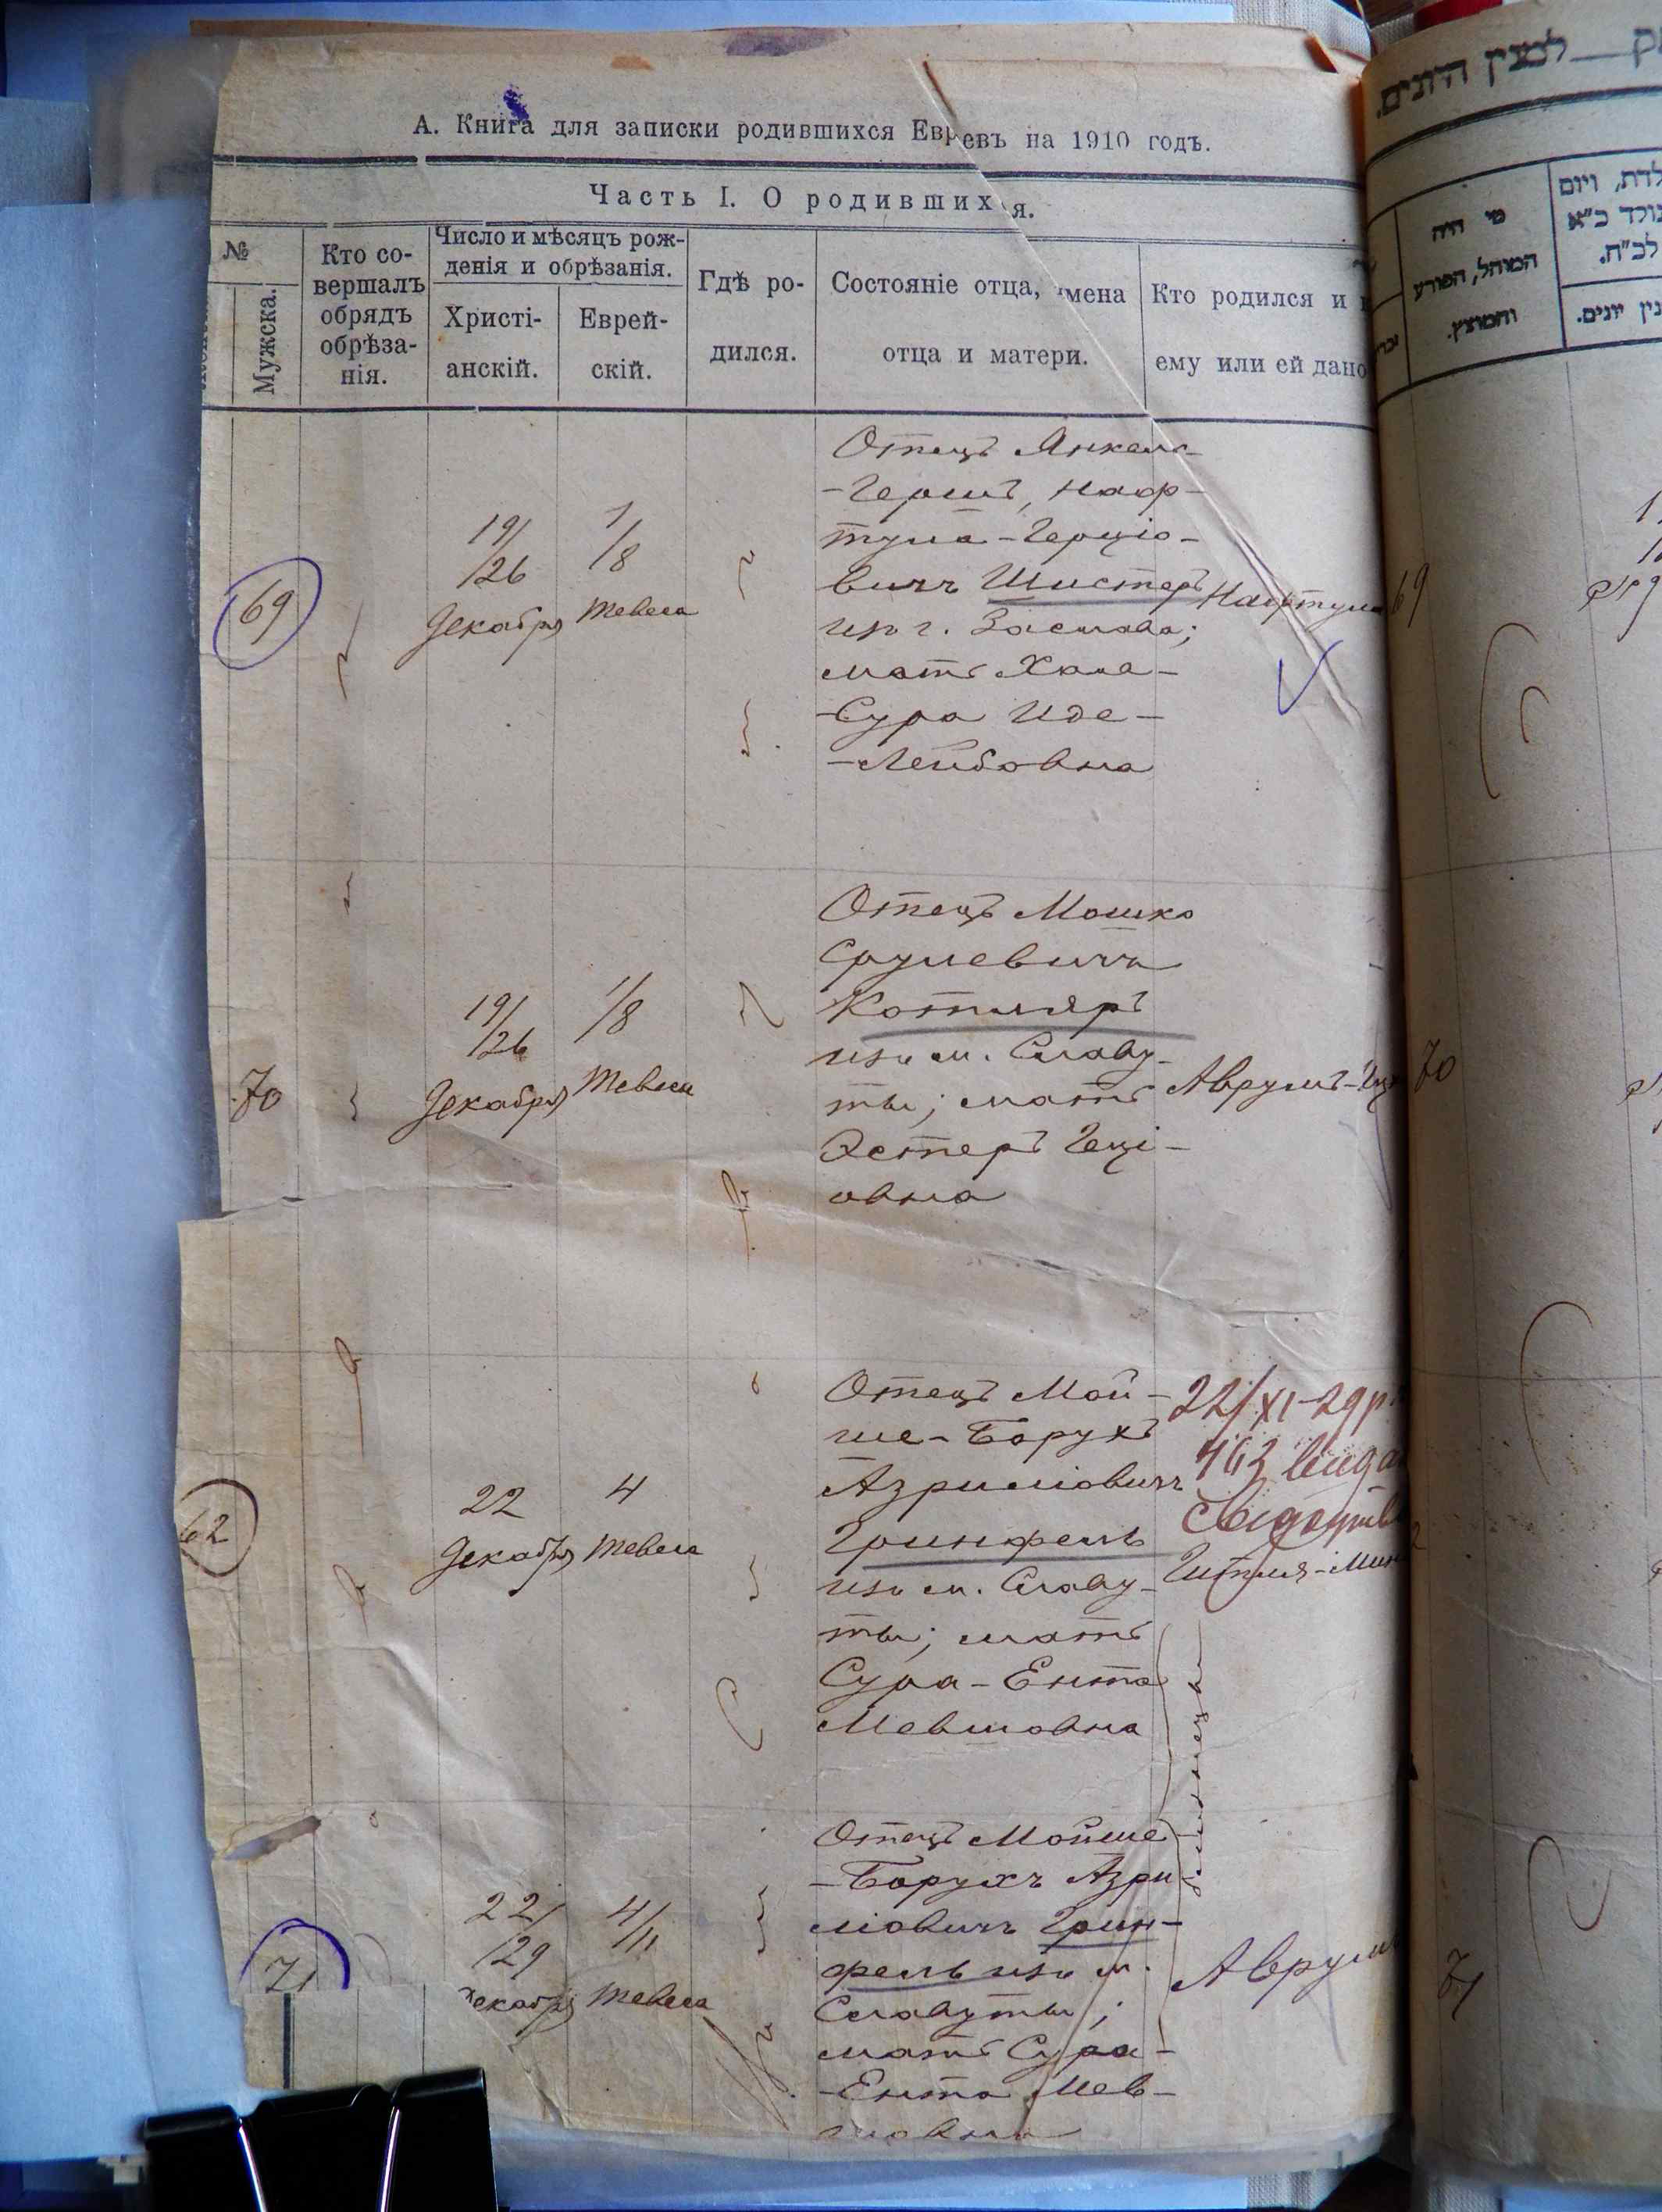 А. Книга для записки родившихся Евреевъ на 1910 годъ.
Часть I. О родившихся.
№
Мужска.
Кто со-
вершалъ
обрядъ
обрѣза-
нія.
Число и мѣсяцъ рож-
денія и обрѣзанія.
Христі-
анскій.
Еврей-
скій.
Гдѣ ро-
дился.
Состояніе отца, имена
отца и матери.
Кто родился и
ему или ей дано
69
19/
/26
Декабря
1/8
Тевеса
Отецъ Янкель-
-Гершъ, Наф-
тула-Герціо-
вичъ Шистеръ
изъ г. Заслава;
мать Хана-
-Сура Иде-
-Лейбовна
Нафтула
69
70
19/
/26
Декабря
1/8
Тевеса
Отецъ Мошко
Срулевичъ
Котляръ
изъ м. Славу-
ты; мать
Эстеръ Геці-
овна
Аврумъ-
70
62
22
Декабря
4
Тевеса
Отецъ Мой-
ше-Борухъ
Азриліовичъ
Гринфель
изъ м. Славу-
ты; мать
Сура-Ента
Мевшовна
22/XI-29 р.
463
Гитля-
близнецы
71
22/
/29
Декабря
4/11
Тевеса
Отецъ Мойше
-Борухъ Азри-
ліовичъ Грин-
фель изъ м.
Славуты;
мать Сура-
-Ента Мев-
шовна
Аврумъ
71
לבצין היונים.
מי היה
המוהל, הפורע
והמוצץ.